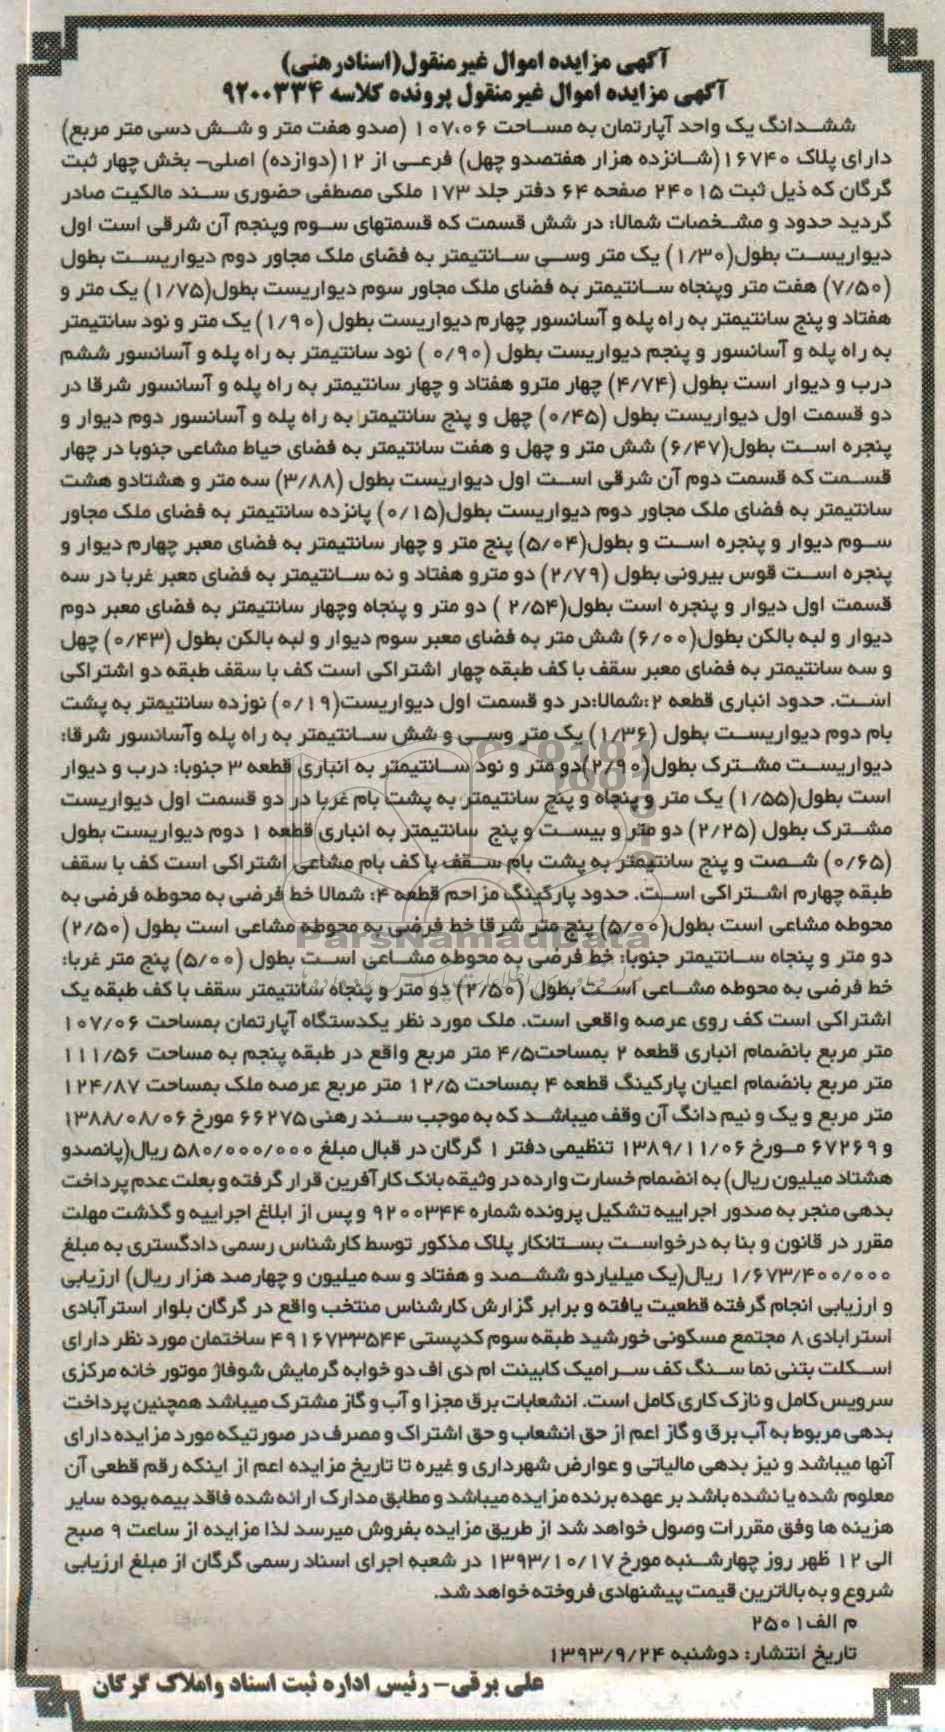 آگهی مزایده اموال غیرمنقول(اسنادرهنی)
آگهی مزایده اموال غیرمنقول پرونده کلاسه ۹۲۰۰۳۳۴
ششدانگ یک واحد آپارتمان به مساحت ۱۰۷،۰۶ (صدو هفت متر و شش دسی متر مربع)
دارای پلاک ۱۶۷۴۰(شانزده هزار هفتصدو چهل) فرعی از ۱۲(دوازده) اصلی- بخش چهار ثبت
گرگان که ذیل ثبت ۲۴۰۱۵ صفحه ۶۴ دفتر جلد ۱۷۳ ملکی مصطفی حضوری سند مالکیت صادر
گردید حدود و مشخصات شمالا: در شش قسمت که قسمتهای سوم وپنجم آن شرقی است اول
دیواریست بطول(۱/۳۰) یک متر وسی سانتیمتر به فضای ملک مجاور دوم دیواریست بطول
(۷/۵۰) هفت متر وپنجاه سانتیمتر به فضای ملک مجاور سوم دیواریست بطول(۱/۷۵) یک متر و
هفتاد و پنج سانتیمتر به راه پله و آسانسور چهارم دیواریست بطول (۱/۹۰) یک متر و نود سانتیمتر
به راه پله و آسانسور و پنجم دیواریست بطول (۰/۹۰ ) نود سانتیمتر به راه پله و آسانسور ششم
درب و دیوار است بطول (۴/۷۴) چهار مترو هفتاد و چهار سانتیمتر به راه پله و آسانسور شرقا در
دو قسمت اول دیواریست بطول (۰/۴۵) چهل و پنج سانتیمتر به راه پله و آسانسور دوم دیوار و
پنجره است بطول(۶/۴۷) شش متر و چهل و هفت سانتیمتر به فضای حیاط مشاعی جنوبا در چهار
قسمت که قسمت دوم آن شرقی است اول دیواریست بطول (۳/۸۸) سه متر و هشتادو هشت
سانتیمتر به فضای ملک مجاور دوم دیواریست بطول(۰/۱۵) پانزده سانتیمتر به فضای ملک مجاور
سوم دیوار و پنجره است و بطول(۵/۰۴) پنج متر و چهار سانتیمتر به فضای معبر چهارم دیوار و
پنجره است قوس بیرونی بطول (۲/۷۹) دو مترو هفتاد و نه سانتیمتر به فضای معبر غربا در سه
قسمت اول دیوار و پنجره است بطول(۲/۵۴ ) دو متر و پنجاه وچهار سانتیمتر به فضای معبر دوم
دیوار و لبه بالکن بطول(۶/۰۰) شش متر به فضای معبر سوم دیوار و لبه بالکن بطول (۰/۴۳) چهل
و سه سانتیمتر به فضای معبر سقف با کف طبقه چهار اشتراکی است کف با سقف طبقه دو اشتراکی
است. حدود انباری قطعه ۲:شمالا:در دو قسمت اول دیواریست(۰/۱۹) نوزده سانتیمتر به پشت
بام دوم دیواریست بطول (۱/۳۶) یک متر وسی و شش سانتیمتر به راه پله وآسانسور شرقا:
دیواریست مشترک بطول(۲/۹۰)دو متر و نود سانتیمتر به انباری قطعه ۳ جنوبا: درب و دیوار
است بطول(۱/۵۵) یک متر و پنجاه و پنج سانتیمتر به پشت بام غربا در دو قسمت اول دیواریست
مشترک بطول (۲/۲۵) دو متر و بیست و پنج سانتیمتر به انباری قطعه ۱ دوم دیواریست بطول
(۰/۶۵) شصت و پنج سانتیمتر به پشت بام سقف با کف بام مشاعی اشتراکی است کف با سقف
طبقه چهارم اشتراکی است. حدود پارکینگ مزاحم قطعه ۴: شمالا خط فرضی به محوطه فرضی به
محوطه مشاعی است بطول(۵/۰۰) پنج متر شرقا خط فرضی به محوطه مشاعی است بطول (۲/۵۰)
دو متر و پنجاه سانتیمتر جنوبا: خط فرضی به محوطه مشاعی است بطول (۵/۰۰) پنج متر غربا:
خط فرضی به محوطه مشاعی است بطول (۲/۵۰) دو متر و پنجاه سانتیمتر سقف با کف طبقه یک
اشتراکی است کف روی عرصه واقعی است. ملک مورد نظر یکدستگاه آپارتمان بمساحت ۱۰۷/۰۶
متر مربع بانضمام انباری قطعه ۲ بمساحت۴/۵ متر مربع واقع در طبقه پنجم به مساحت ۱۱۱/۵۶
متر مربع بانضمام اعیان پارکینگ قطعه ۴ بمساحت ۱۲/۵ متر مربع عرصه ملک بمساحت ۱۲۴/۸۷
متر مربع و یک و نیم دانگ آن وقف میباشد که به موجب سند رهنی ۶۶۲۷۵ مورخ ۱۳۸۸/۰۸/۰۶
و ۶۷۲۶۹ مورخ ۱۳۸۹/۱۱/۰۶ تنظیمی دفتر ۱ گرگان در قبال مبلغ ۵۸۰/۰۰۰/۰۰۰ ریال(پانصدو
هشتاد میلیون ریال) به انضمام خسارت وارده در وثیقه بانک کارآفرین قرار گرفته و بعلت عدم پرداخت
بدهی منجر به صدور اجراییه تشکیل پرونده شماره ۹۲۰۰۳۴۴ و پس از ابلاغ اجراییه و گذشت مهلت
مقرر در قانون و بنا به درخواست بستانکار پلاک مذکور توسط کارشناس رسمی دادگستری به مبلغ
۱/۶۷۳/۴۰۰/۰۰۰ ریال(یک میلیاردو ششصد و هفتاد و سه میلیون و چهارصد هزار ریال) ارزیابی
و ارزیابی انجام گرفته قطعیت یافته و برابر گزارش کارشناس منتخب واقع در گرگان بلوار استرآبادی
استرابادی ۸ مجتمع مسکونی خورشید طبقه سوم کدپستی ۴۹۱۶۷۳۳۵۴۴ ساختمان مورد نظر دارای
اسکلت بتنی نما سنگ کف سرامیک کابینت ام دی اف دو خوابه گرمایش شوفاژ موتور خانه مرکزی
سرویس کامل و نازک کاری کامل است. انشعابات برق مجزا و آب و گاز مشترک میباشد همچنین پرداخت
بدهی مربوط به آب برق و گاز اعم از حق انشعاب و حق اشتراک و مصرف در صورتیکه مورد مزایده دارای
آنها میباشد و نیز بدهی مالیاتی و عوارض شهرداری و غیره تا تاریخ مزایده اعم از اینکه رقم قطعی آن
معلوم شده یا نشده باشد بر عهده برنده مزایده میباشد و مطابق مدارک ارائه شده فاقد بیمه بوده سایر
هزینه ها وفق مقررات وصول خواهد شد از طریق مزایده بفروش میرسد لذا مزایده از ساعت ۹ صبح
الی ۱۲ ظهر روز چهارشنبه مورخ ۱۳۹۳/۱۰/۱۷ در شعبه اجرای اسناد رسمی گرگان از مبلغ ارزیابی
شروع و به بالاترین قیمت پیشنهادی فروخته خواهد شد.
م الف۲۵۰۱
تاریخ انتشار: دوشنبه ۱۳۹۳/۹/۲۴
علی برقی- رئیس اداره ثبت اسناد واملاک گرگان
ParsNamadData